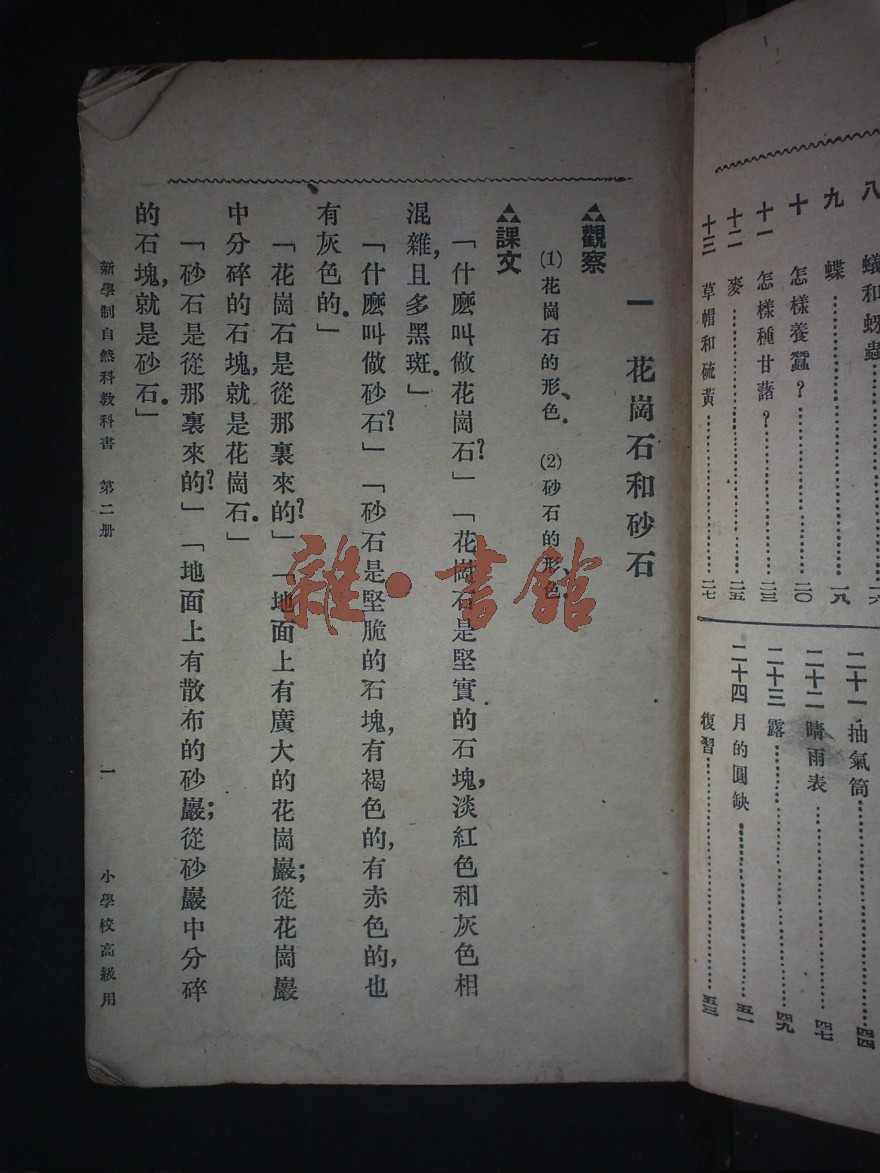 八 蟻和蚜蟲……一六
九 蝶……一九
十 怎樣養蠶?……二〇
十一 怎樣種甘藷?……二三
十二 麥……二五
十三 草帽和硫黃……二七
二十一 抽氣筒……四四
二十二 晴雨表……四七
二十三 露……四九
二十四 月的圓缺……五一
復習……五三
一 花崗石和砂石
觀察
(1)花崗石的形、色. (2)砂石的形、色.
課文
「什麽叫做花崗石?」「花崗石是堅實的石塊,淡紅色和灰色相
混雜,且多黑斑.」
「什麽叫做砂石?」「砂石是堅脆的石塊,有褐色的,有赤色的,也
有灰色的.」
「花崗石是從那裏來的?」「地面上有廣大的花崗巖;從花崗巖
中分碎的石塊,就是花崗石.」
「砂石是從那裏來的?」「地面上有散布的砂巖;從砂巖中分碎
的石塊,就是砂石.」
新學制自然科教科書 第二册 一 小學校高級用
雜·書館